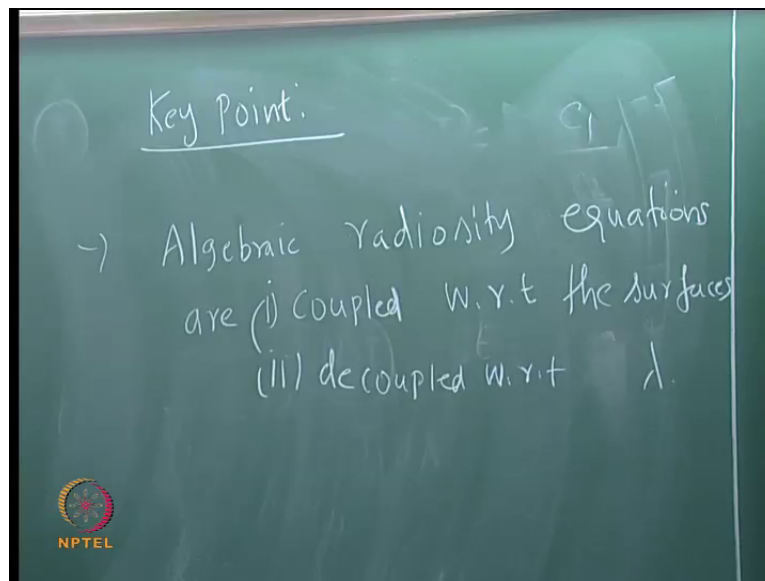 Key Point:
-) Algebraic radiosity equations
are (i) coupled w.r.t the surfaces
(ii) decoupled w.r.t λ.
NPTEL